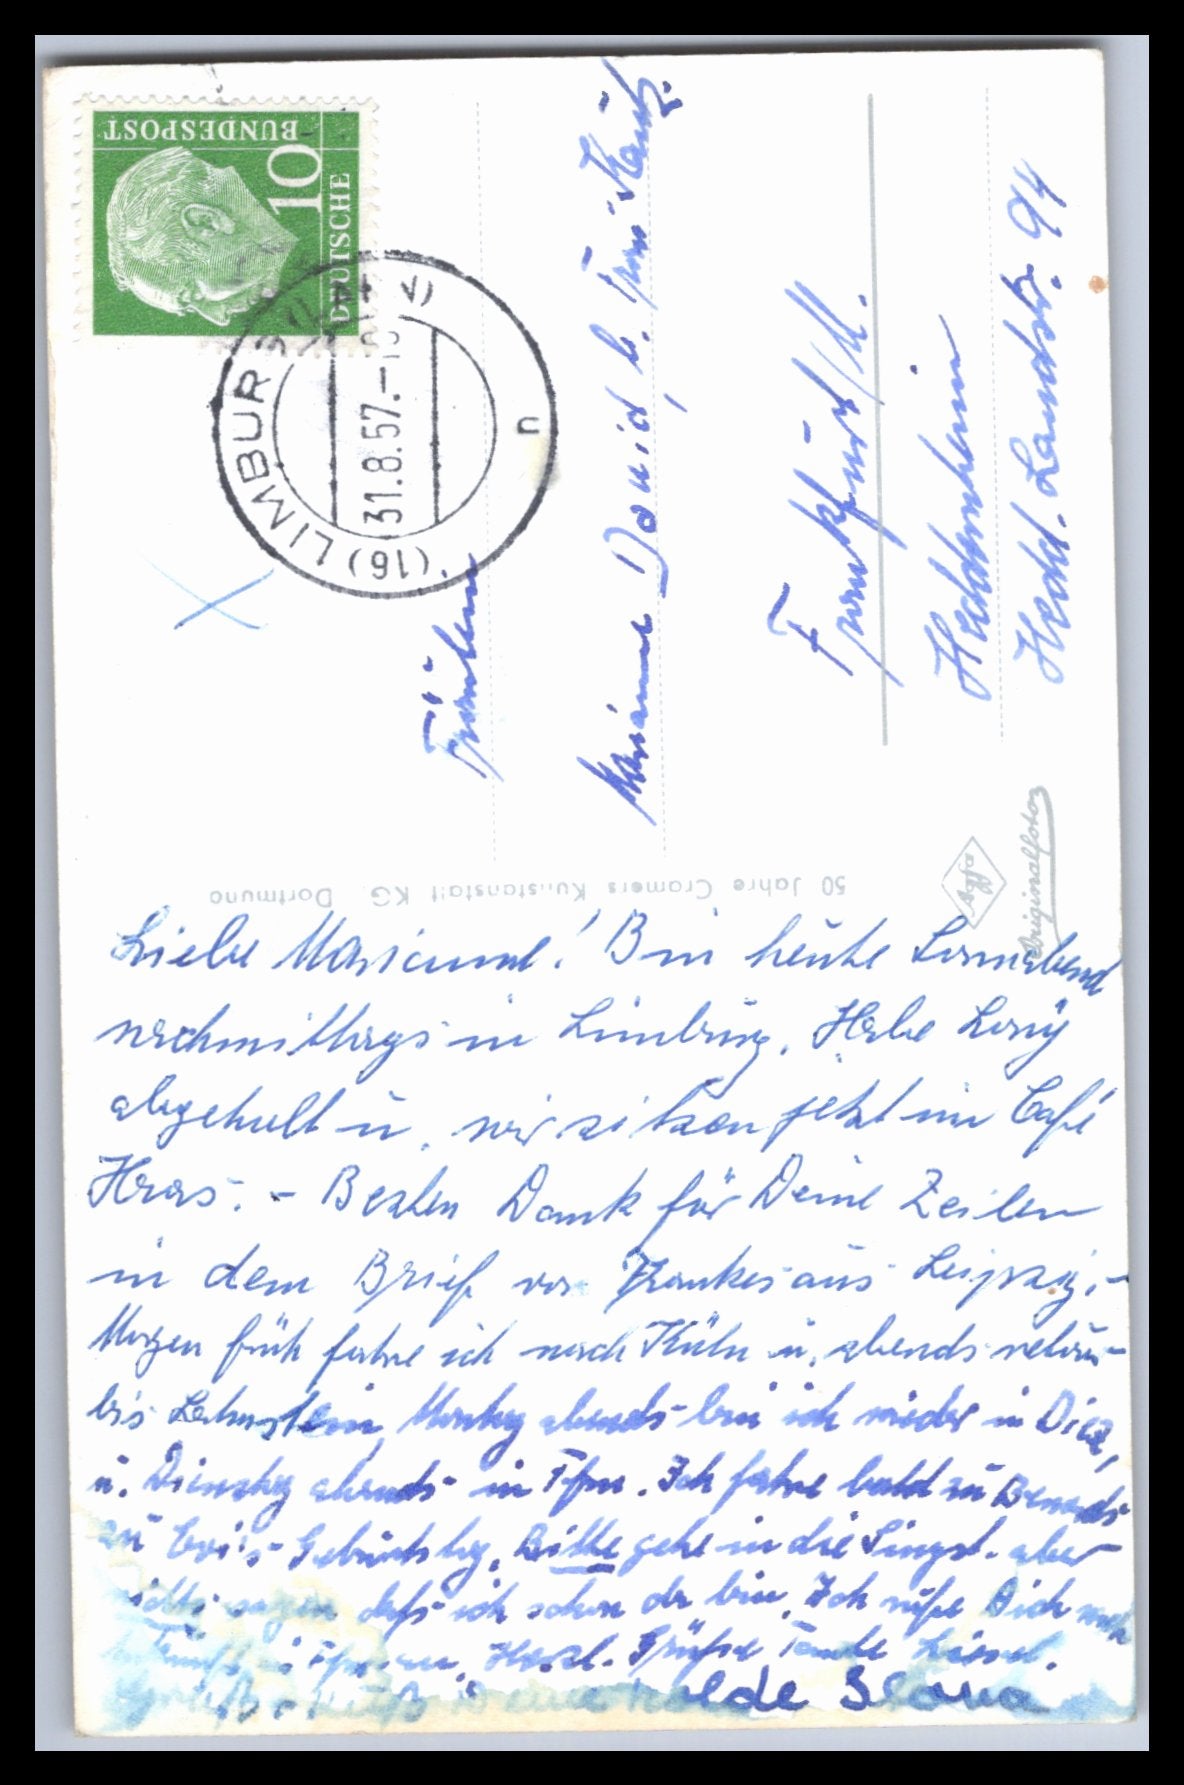 DEUTSCHE
BUNDESPOST
10
(16) LIMBUR
31.8.57.-
n
Fräulein
Marianne David b. Frau
Frankfurt/M.
Heddernheim
Hedd. Landstr. 94
50 Jahre Cramers Kunstanstalt KG. Dortmund
Agfa
Originalfoto
Liebe Marianne! Bin heute Sonnabend
nachmittags in Limburg. Habe Rosy
abgeholt u. wir sitzen jetzt im Café
Haas. - Besten Dank für Deine Zeilen
in dem Brief von Frankes aus Leipzig. -
Morgen früh fahre ich nach Köln u. abends retour
bis Lahnstein Montag abends bin ich wieder in Diez,
u. Dienstag abends in Ffm. Ich fahre bald zu
zu Evi's Geburtstag. Bitte gehe in die Singst. aber
nichts sagen daß ich schon da bin. Ich rufe Dich nach
Ankunft in Ffm an. Herzl. Grüße Tante Liesel.
Gruß u. Kuß Deine